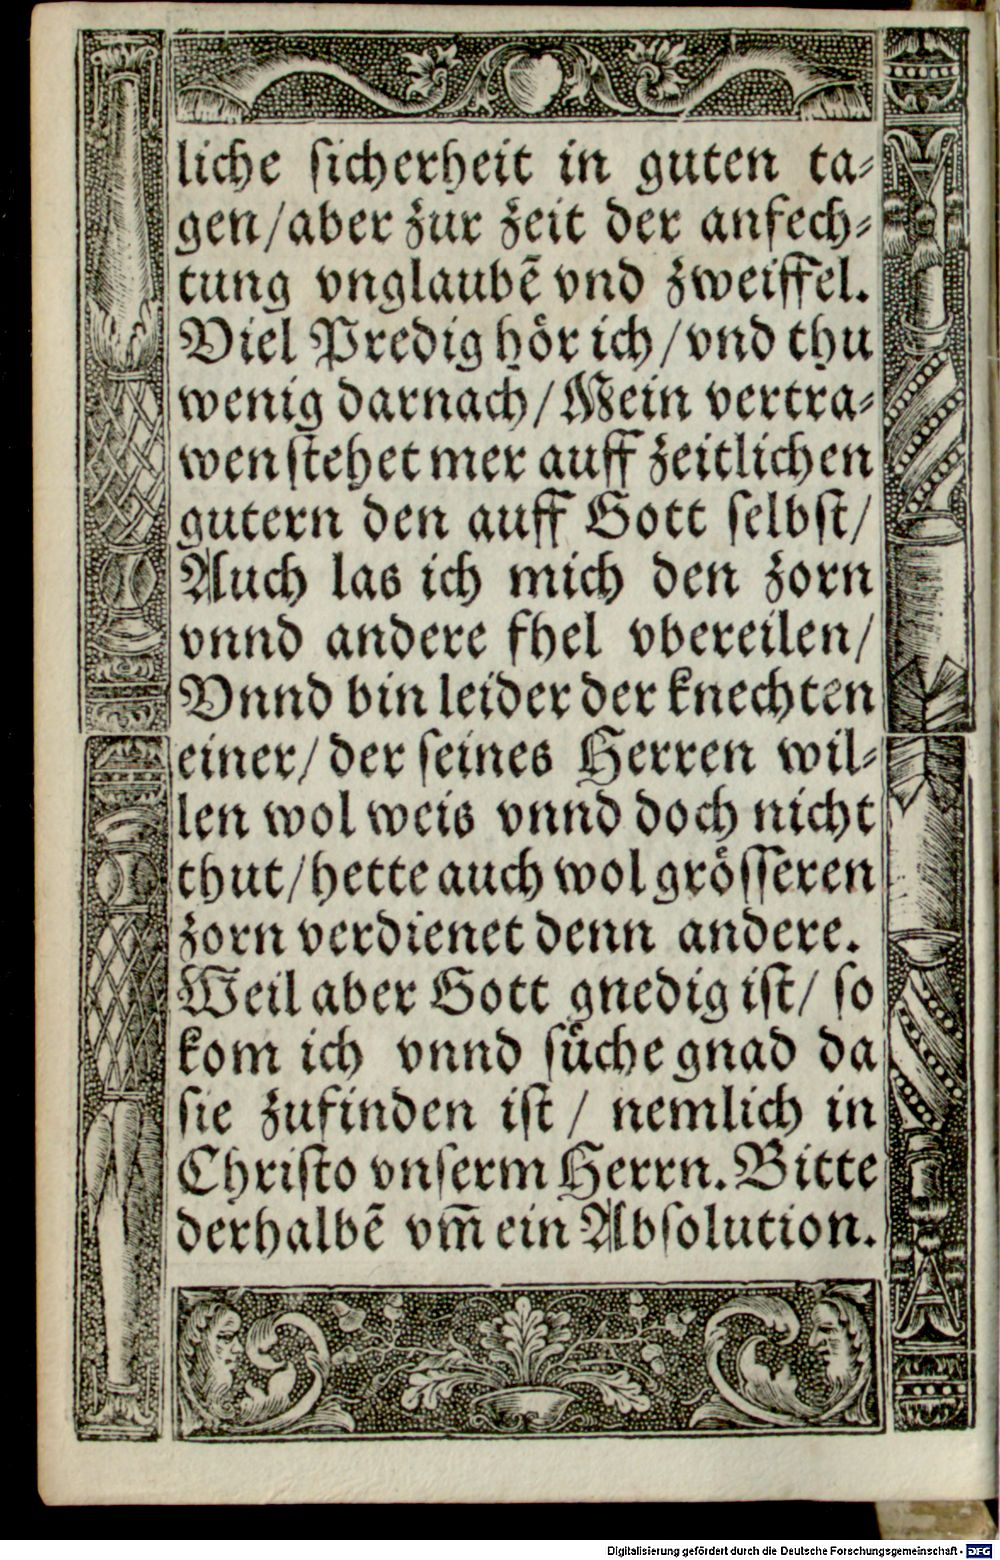 liche sicherheit in guten ta⸗
gen/aber zur zeit der anfech⸗
tung vnglaubẽ vnd zweiffel.
Viel Predig hör ich/vnd thu
wenig darnach/Mein vertra⸗
wen stehet mer auff zeitlichen
gutern den auff Gott selbst/
Auch las ich mich den zorn
vnnd andere fhel vbereilen/
Vnnd bin leider der knechten
einer/der seines Herren wil⸗
len wol weis vnnd doch nicht
thut/hette auch wol grösseren
zorn verdienet denn andere.
Weil aber Gott gnedig ist/ so
kom ich vnnd sůche gnad da
sie zufinden ist/ nemlich in
Christo vnserm Herrn. Bitte
derhalbẽ vm̃ ein Absolution.
Digitalisierung gefördert durch die Deutsche Forschungsgemeinschaft - DFG